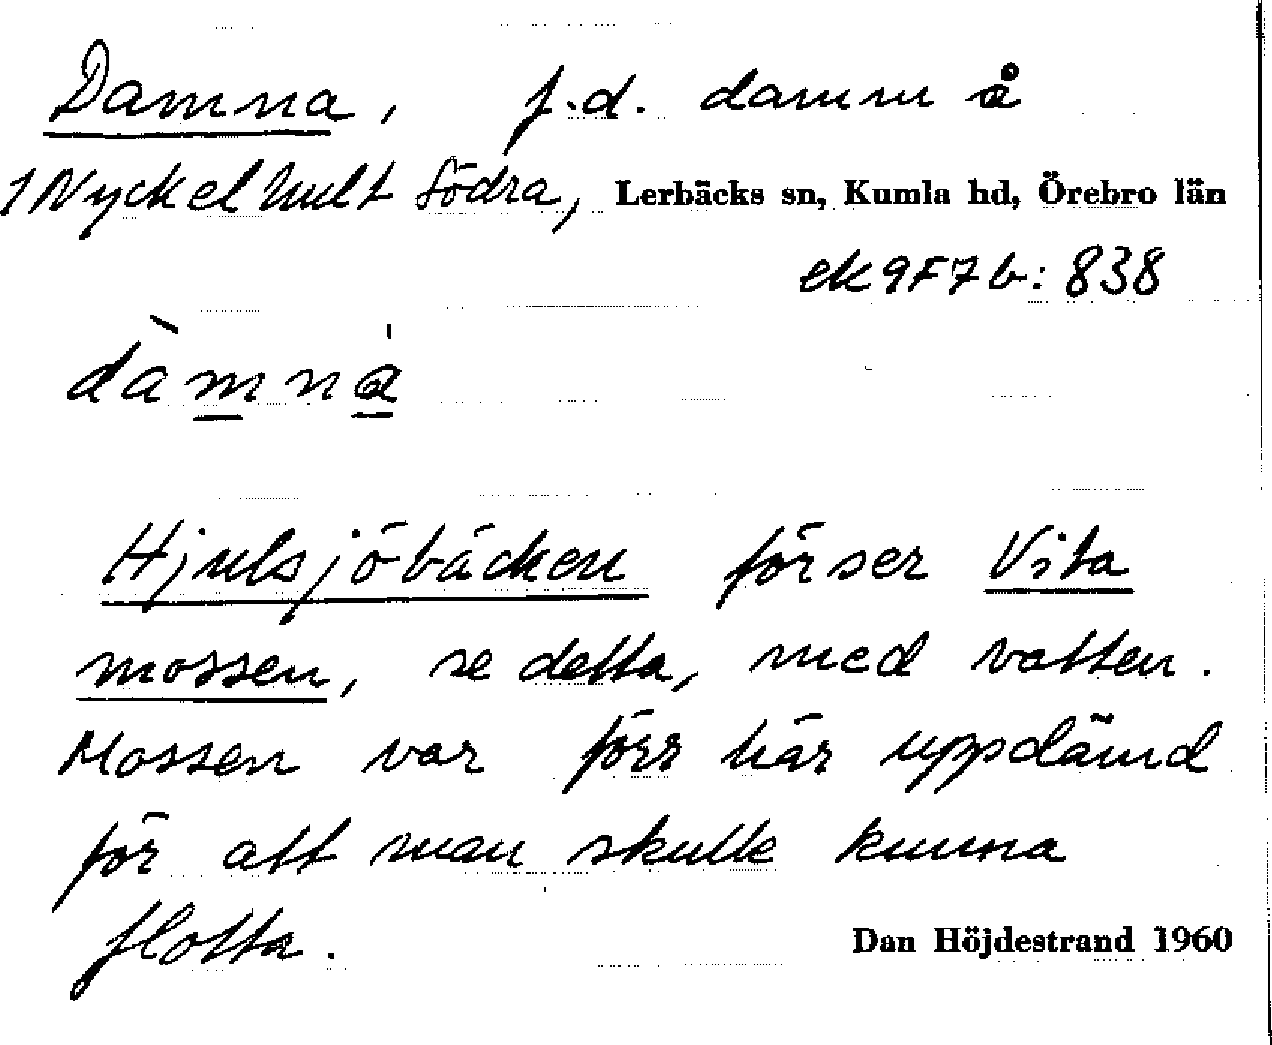 Damna, f.d. damm å
1 Nyckelhult Södra, Lerbäcks sn, Kumla hd, Örebro län
ek 9F7b: 838
dàmna̍
Hjulsjöbäcken förser Vita
mossen, se detta, med vatten.
Mossen var förr här uppdämd
för att man skulle kunna
flotta.
Dan Höjdestrand 1960